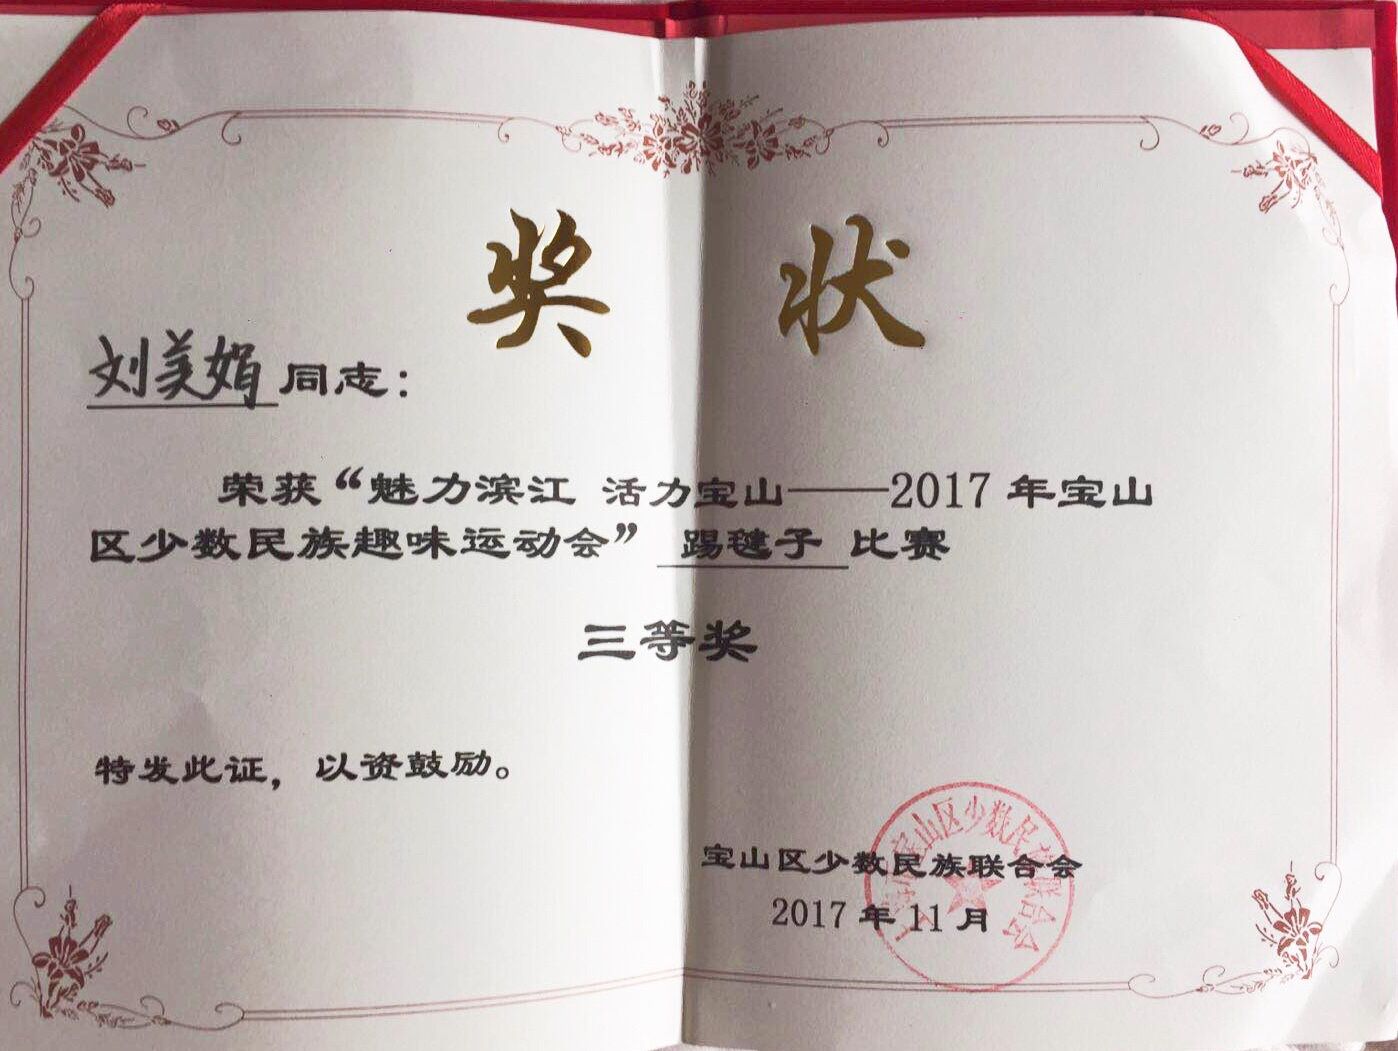 奖 状
刘美娟 同志：
荣获“魅力滨江 活力宝山——2017 年宝山
区少数民族趣味运动会” 踢毽子 比赛
三等奖
特发此证，以资鼓励。
宝山区少数民族联合会
2017 年 11 月
宝山区少数民族联合会